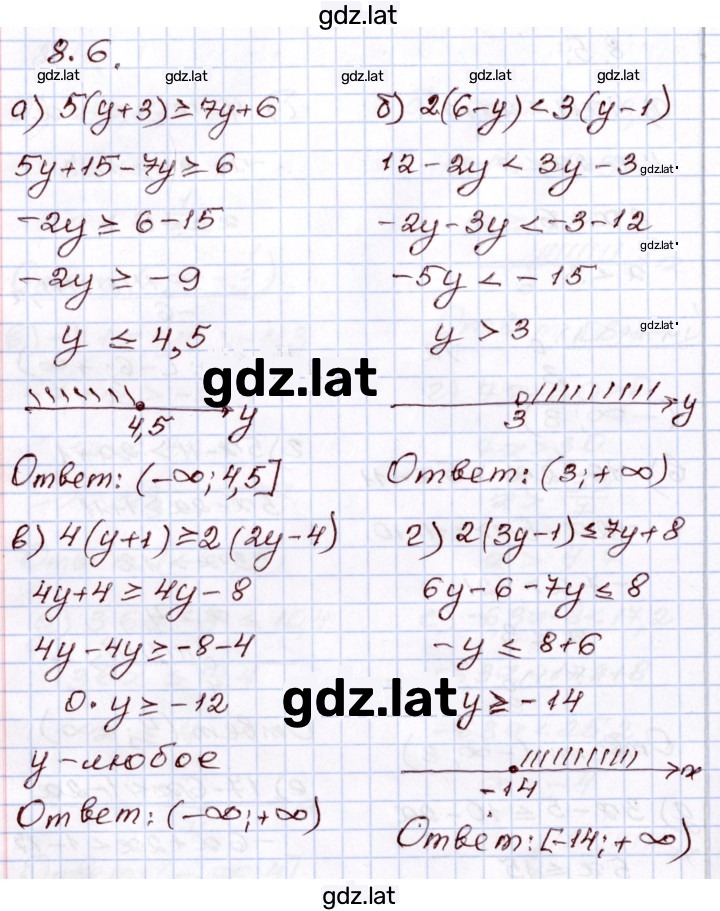 gdz.lat
8.6.
gdz.lat gdz.lat gdz.lat gdz.lat gdz.lat
а) 5(y+3) ≥ 7y+6
5y+15-7y ≥ 6
-2y ≥ 6-15
-2y ≥ -9
y ≤ 4,5
4,5 y
Ответ: (-∞; 4,5]
б) 2(6-y) < 3(y-1)
12-2y < 3y-3 gdz.lat
-2y-3y < -3-12
gdz.lat
-5y < -15
y > 3 gdz.lat
gdz.lat
3 y
Ответ: (3; +∞)
в) 4(y+1) ≥ 2(2y-4)
4y+4 ≥ 4y-8
4y-4y ≥ -8-4
0·y ≥ -12
y-любое
Ответ: (-∞; +∞)
г) 2(3y-1) ≤ 7y+8
6y-6-7y ≤ 8
-y ≤ 8+6
gdz.lat
y ≥ -14
-14 x
Ответ: [-14; +∞)
gdz.lat